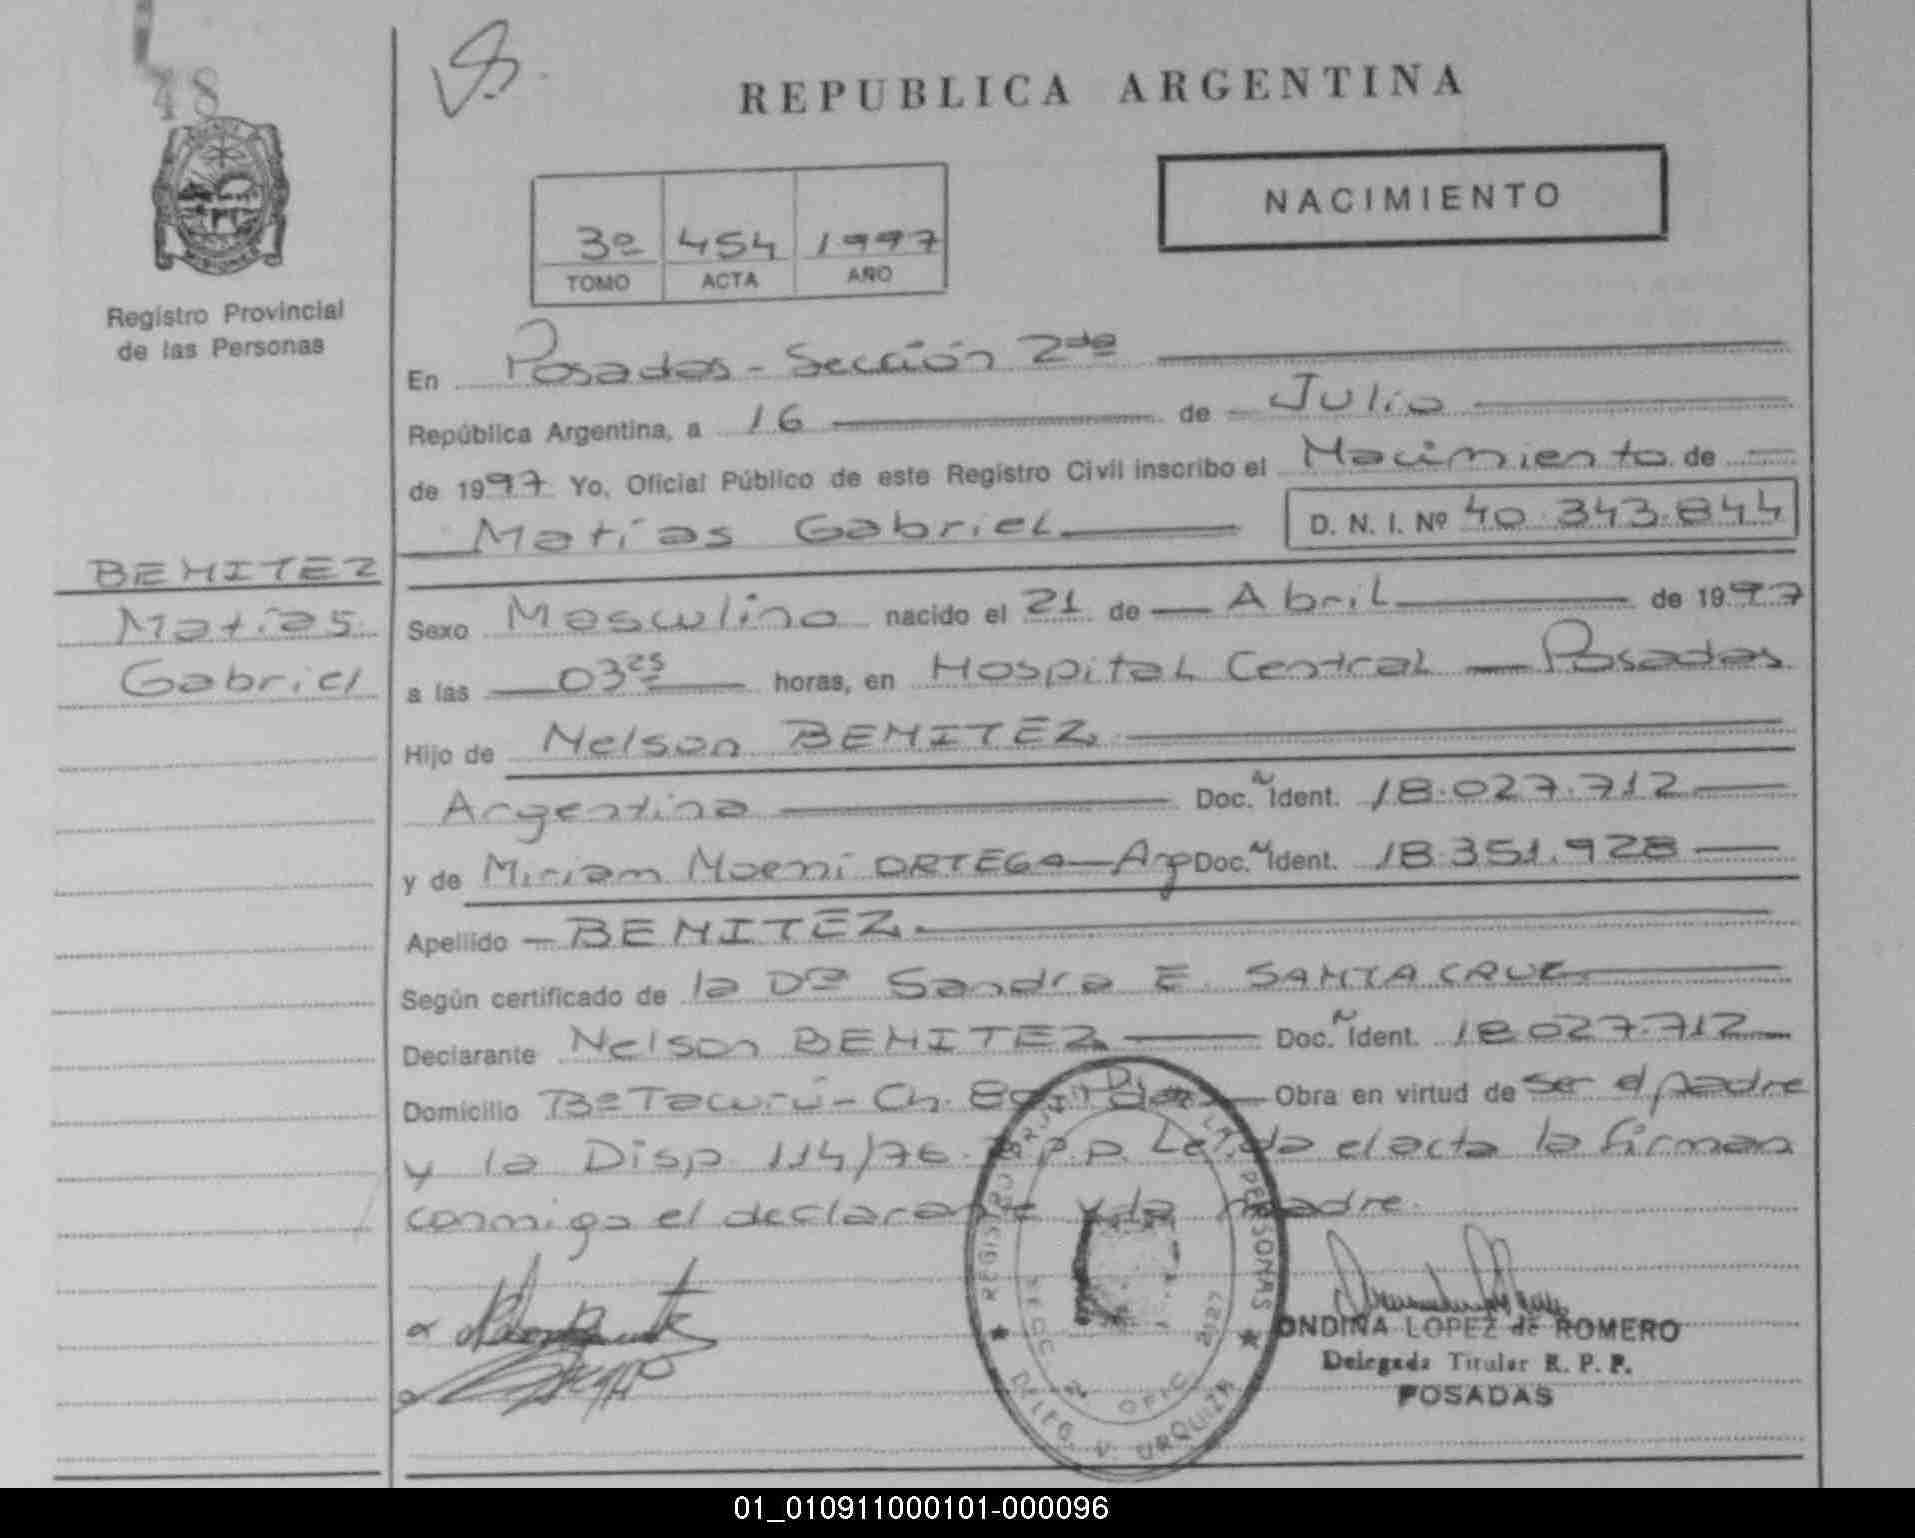 48
REPUBLICA ARGENTINA
NACIMIENTO
3º 454 1997
TOMO ACTA AÑO
Registro Provincial
de las Personas
En Posadas - Sección 2da
República Argentina, a 16 de Julio
de 1997 Yo, Oficial Público de este Registro Civil inscribo el Nacimiento de
Matías Gabriel D. N. I. Nº 40.343.844
BENITEZ
Matías
Gabriel
Sexo Masculino nacido el 21 de Abril de 1997
a las 03 25 horas, en Hospital Central - Posadas
Hijo de Nelson BENITEZ
Argentina Doc. Ident. 18.027.712
y de Miriam Noemi ORTEGA - Arg Doc. Ident. 18.351.928
Apellido BENITEZ
Según certificado de la Dra Sandra E. SANTA CRUZ
Declarante Nelson BENITEZ Doc. Ident. 18.027.712
Domicilio Bº Tacurú - Ch. Obra en virtud de ser el padre
y la Disp. 114/76 R.P.P. Leída el acta la firman
conmigo el declarante y la madre.
REGISTRO LAS PERSONAS
OFIC 2127
DELEG. V. URQUIZA
ONDINA LOPEZ de ROMERO
Delegada Titular R. P. P.
POSADAS
01_010911000101-000096